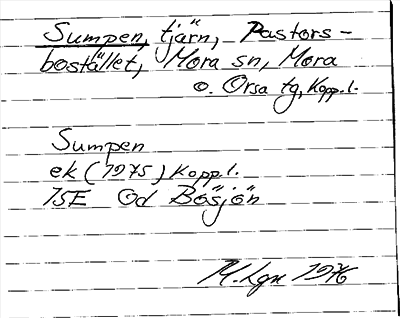 Sumpen, tjärn, Pastors-
bostället, Mora sn, Mora
o. Orsa tg, Kopp.l.
Sumpen
ek (1975) Kopp.l.
15E Od Bösjön
M.Lgn 1976